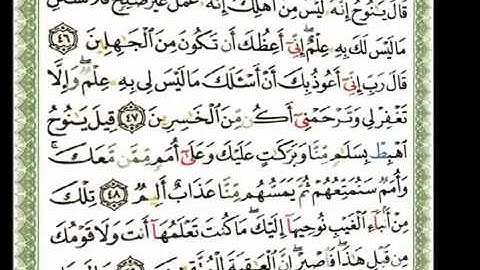 قَالَ يَٰنُوحُ إِنَّهُۥ لَيْسَ مِنْ أَهْلِكَ إِنَّهُۥ عَمَلٌ غَيْرُ صَٰلِحٍ فَلَا تَسْـَٔلْنِ
مَا لَيْسَ لَكَ بِهِۦ عِلْمٌ إِنِّىٓ أَعِظُكَ أَن تَكُونَ مِنَ ٱلْجَٰهِلِينَ ٤٦
قَالَ رَبِّ إِنِّىٓ أَعُوذُ بِكَ أَنْ أَسْـَٔلَكَ مَا لَيْسَ لِى بِهِۦ عِلْمٌ وَإِلَّا
تَغْفِرْ لِى وَتَرْحَمْنِىٓ أَكُن مِّنَ ٱلْخَٰسِرِينَ ٤٧ قِيلَ يَٰنُوحُ
ٱهْبِطْ بِسَلَٰمٍ مِّنَّا وَبَرَكَٰتٍ عَلَيْكَ وَعَلَىٰٓ أُمَمٍ مِّمَّن مَّعَكَ ۚ
وَأُمَمٌ سَنُمَتِّعُهُمْ ثُمَّ يَمَسُّهُم مِّنَّا عَذَابٌ أَلِيمٌ ٤٨ تِلْكَ
مِنْ أَنۢبَآءِ ٱلْغَيْبِ نُوحِيهَآ إِلَيْكَ ۖ مَا كُنتَ تَعْلَمُهَآ أَنتَ وَلَا قَوْمُكَ
مِن قَبْلِ هَٰذَا ۖ فَٱصْبِرْ ۖ إِنَّ ٱلْعَٰقِبَةَ لِلْمُتَّقِينَ